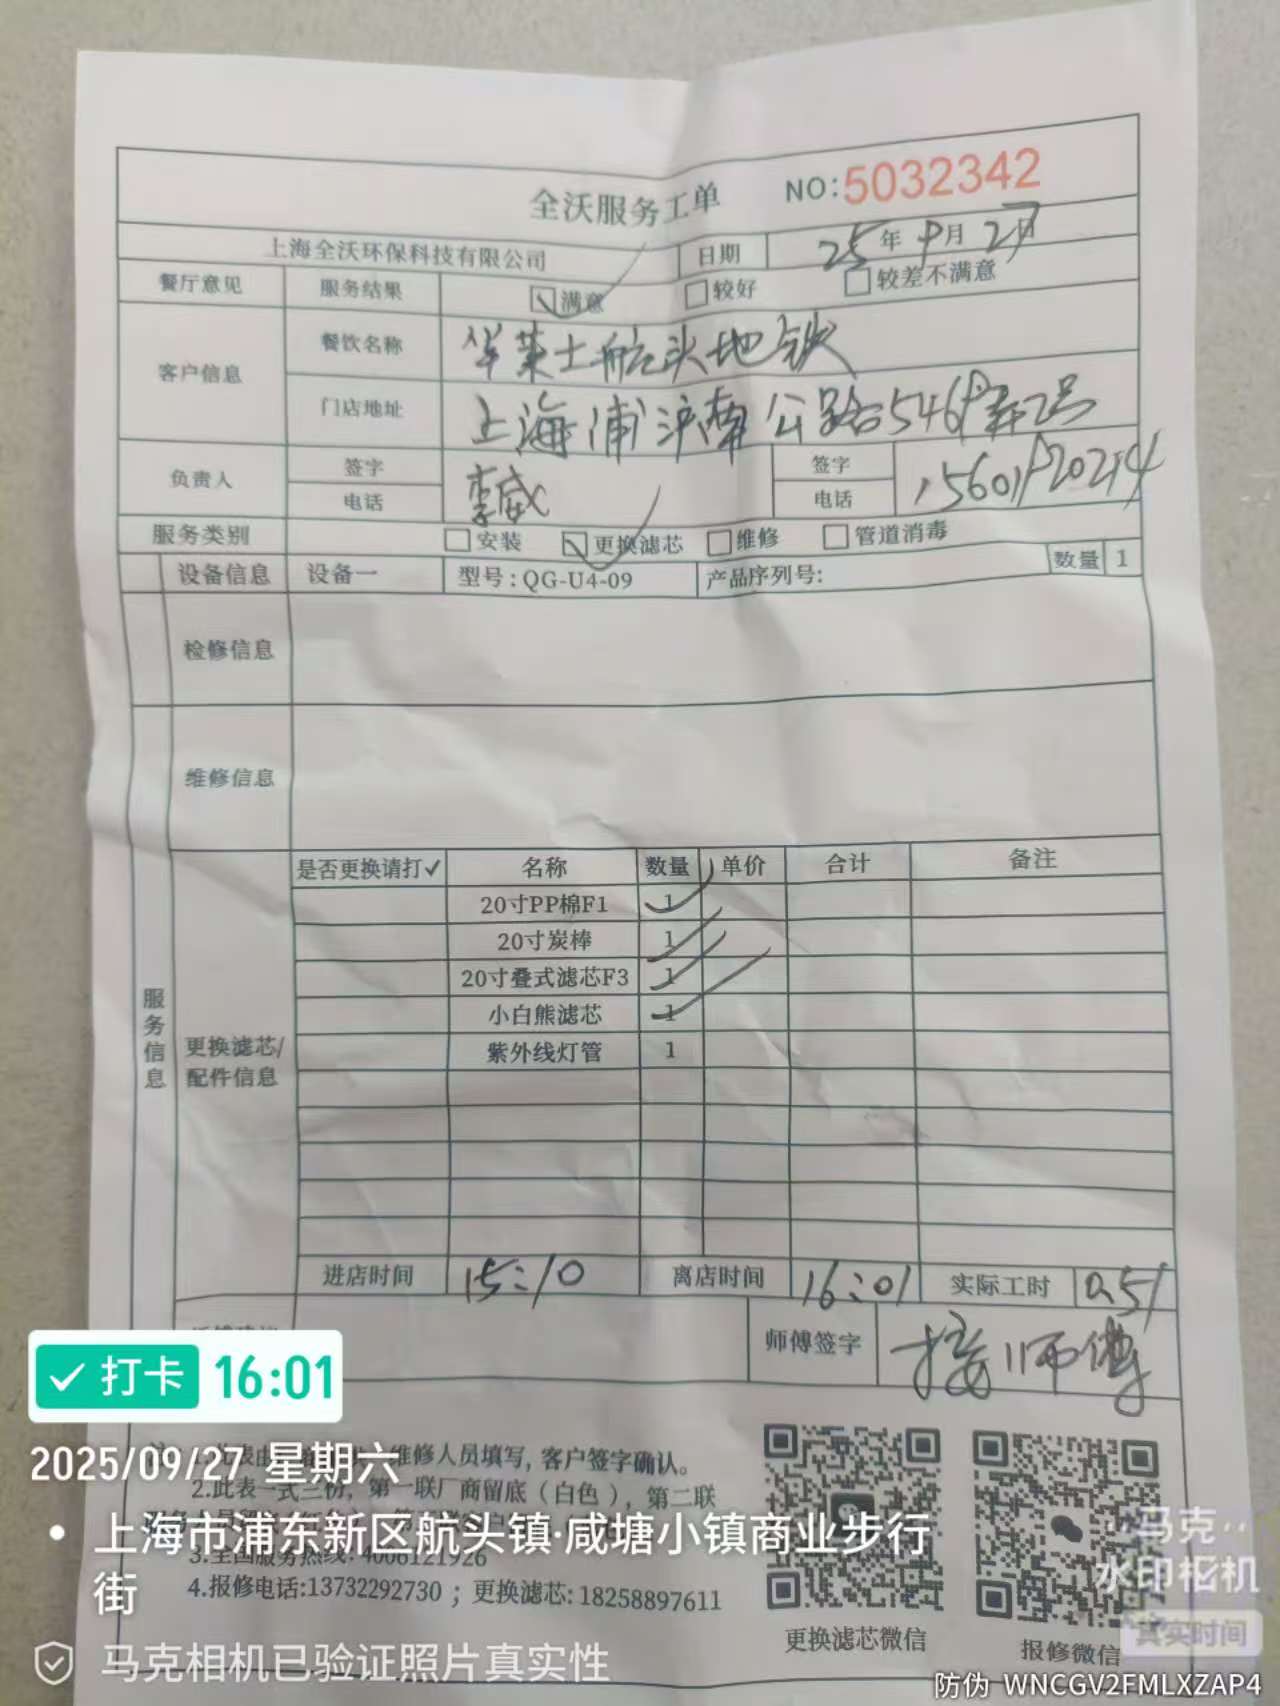 全沃服务工单 NO:5032342
上海全沃环保科技有限公司 日期 25年9月27日
餐厅意见 服务结果 满意 较好 较差不满意
客户信息 餐饮名称 华莱士航头地铁
门店地址 上海浦沪南公路5469弄2号
负责人 签字 李威 签字
电话 电话 15601920214
服务类别 安装 更换滤芯 维修 管道消毒
设备信息 设备一 型号:QG-U4-09 产品序列号: 数量 1
检修信息
维修信息
服务信息
更换滤芯/
配件信息
是否更换请打✓ 名称 数量 单价 合计 备注
20寸PP棉F1 1
20寸炭棒 1
20寸叠式滤芯F3 1
小白熊滤芯 1
紫外线灯管 1
进店时间 15:10 离店时间 16:01 实际工时 0.51
师傅签字 接师傅
打卡 16:01
维修人员填写,客户签字确认。
2025/09/27 星期六
2.此表一式三份,第一联厂商留底(白色),第二联
上海市浦东新区航头镇·咸塘小镇商业步行
街
3.全国服务热线:4006121926
4.报修电话:13732292730;更换滤芯:18258897611
更换滤芯微信 报修微信
马克
水印相机
真实时间
马克相机已验证照片真实性
防伪 WNCGV2FMLXZAP4